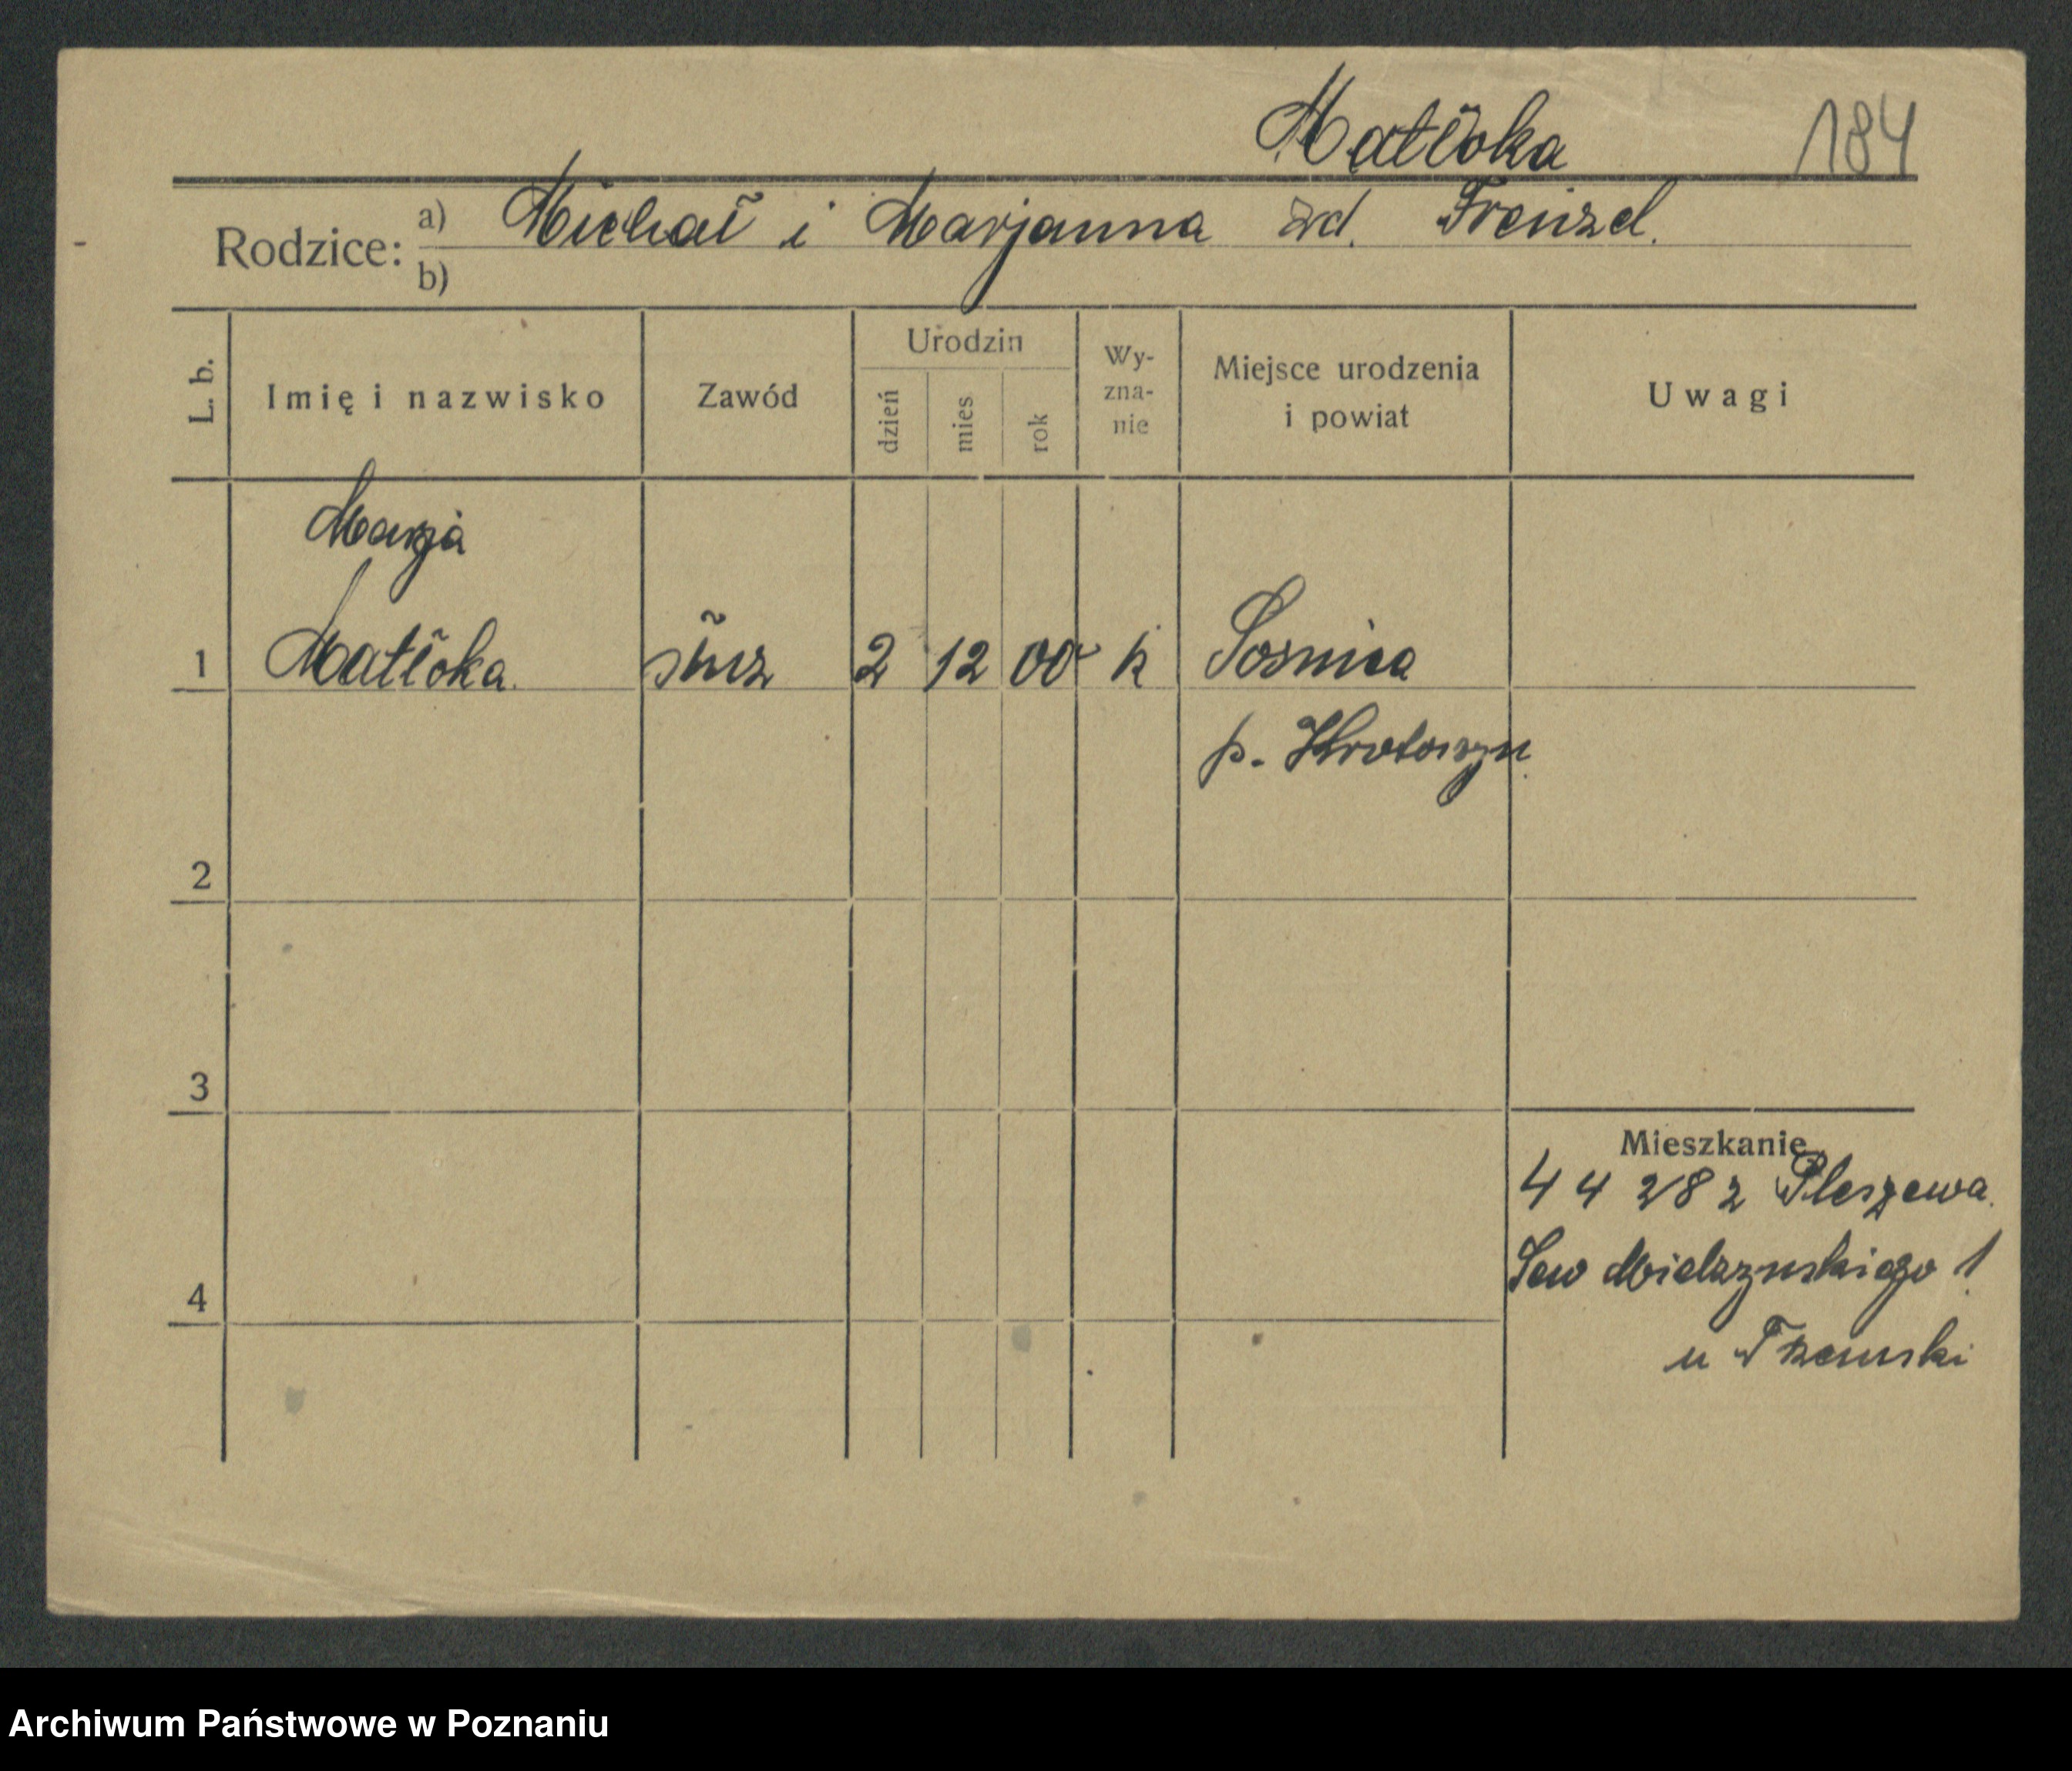 Matłoka 184
Rodzice: a) Michał i Marjanna zd. Frenzel.
b)
L. b. Imię i nazwisko Zawód Urodzin dzień mies rok Wy-zna-nie Miejsce urodzenia i powiat Uwagi
Marja
1 Matłoka. służ 2 12 00 k Sosnica
p. Krotoszyn
2
3
Mieszkanie
4 4 282 Pleszewa.
Sew Mielzynskiego 1
4
u
Archiwum Państwowe w Poznaniu